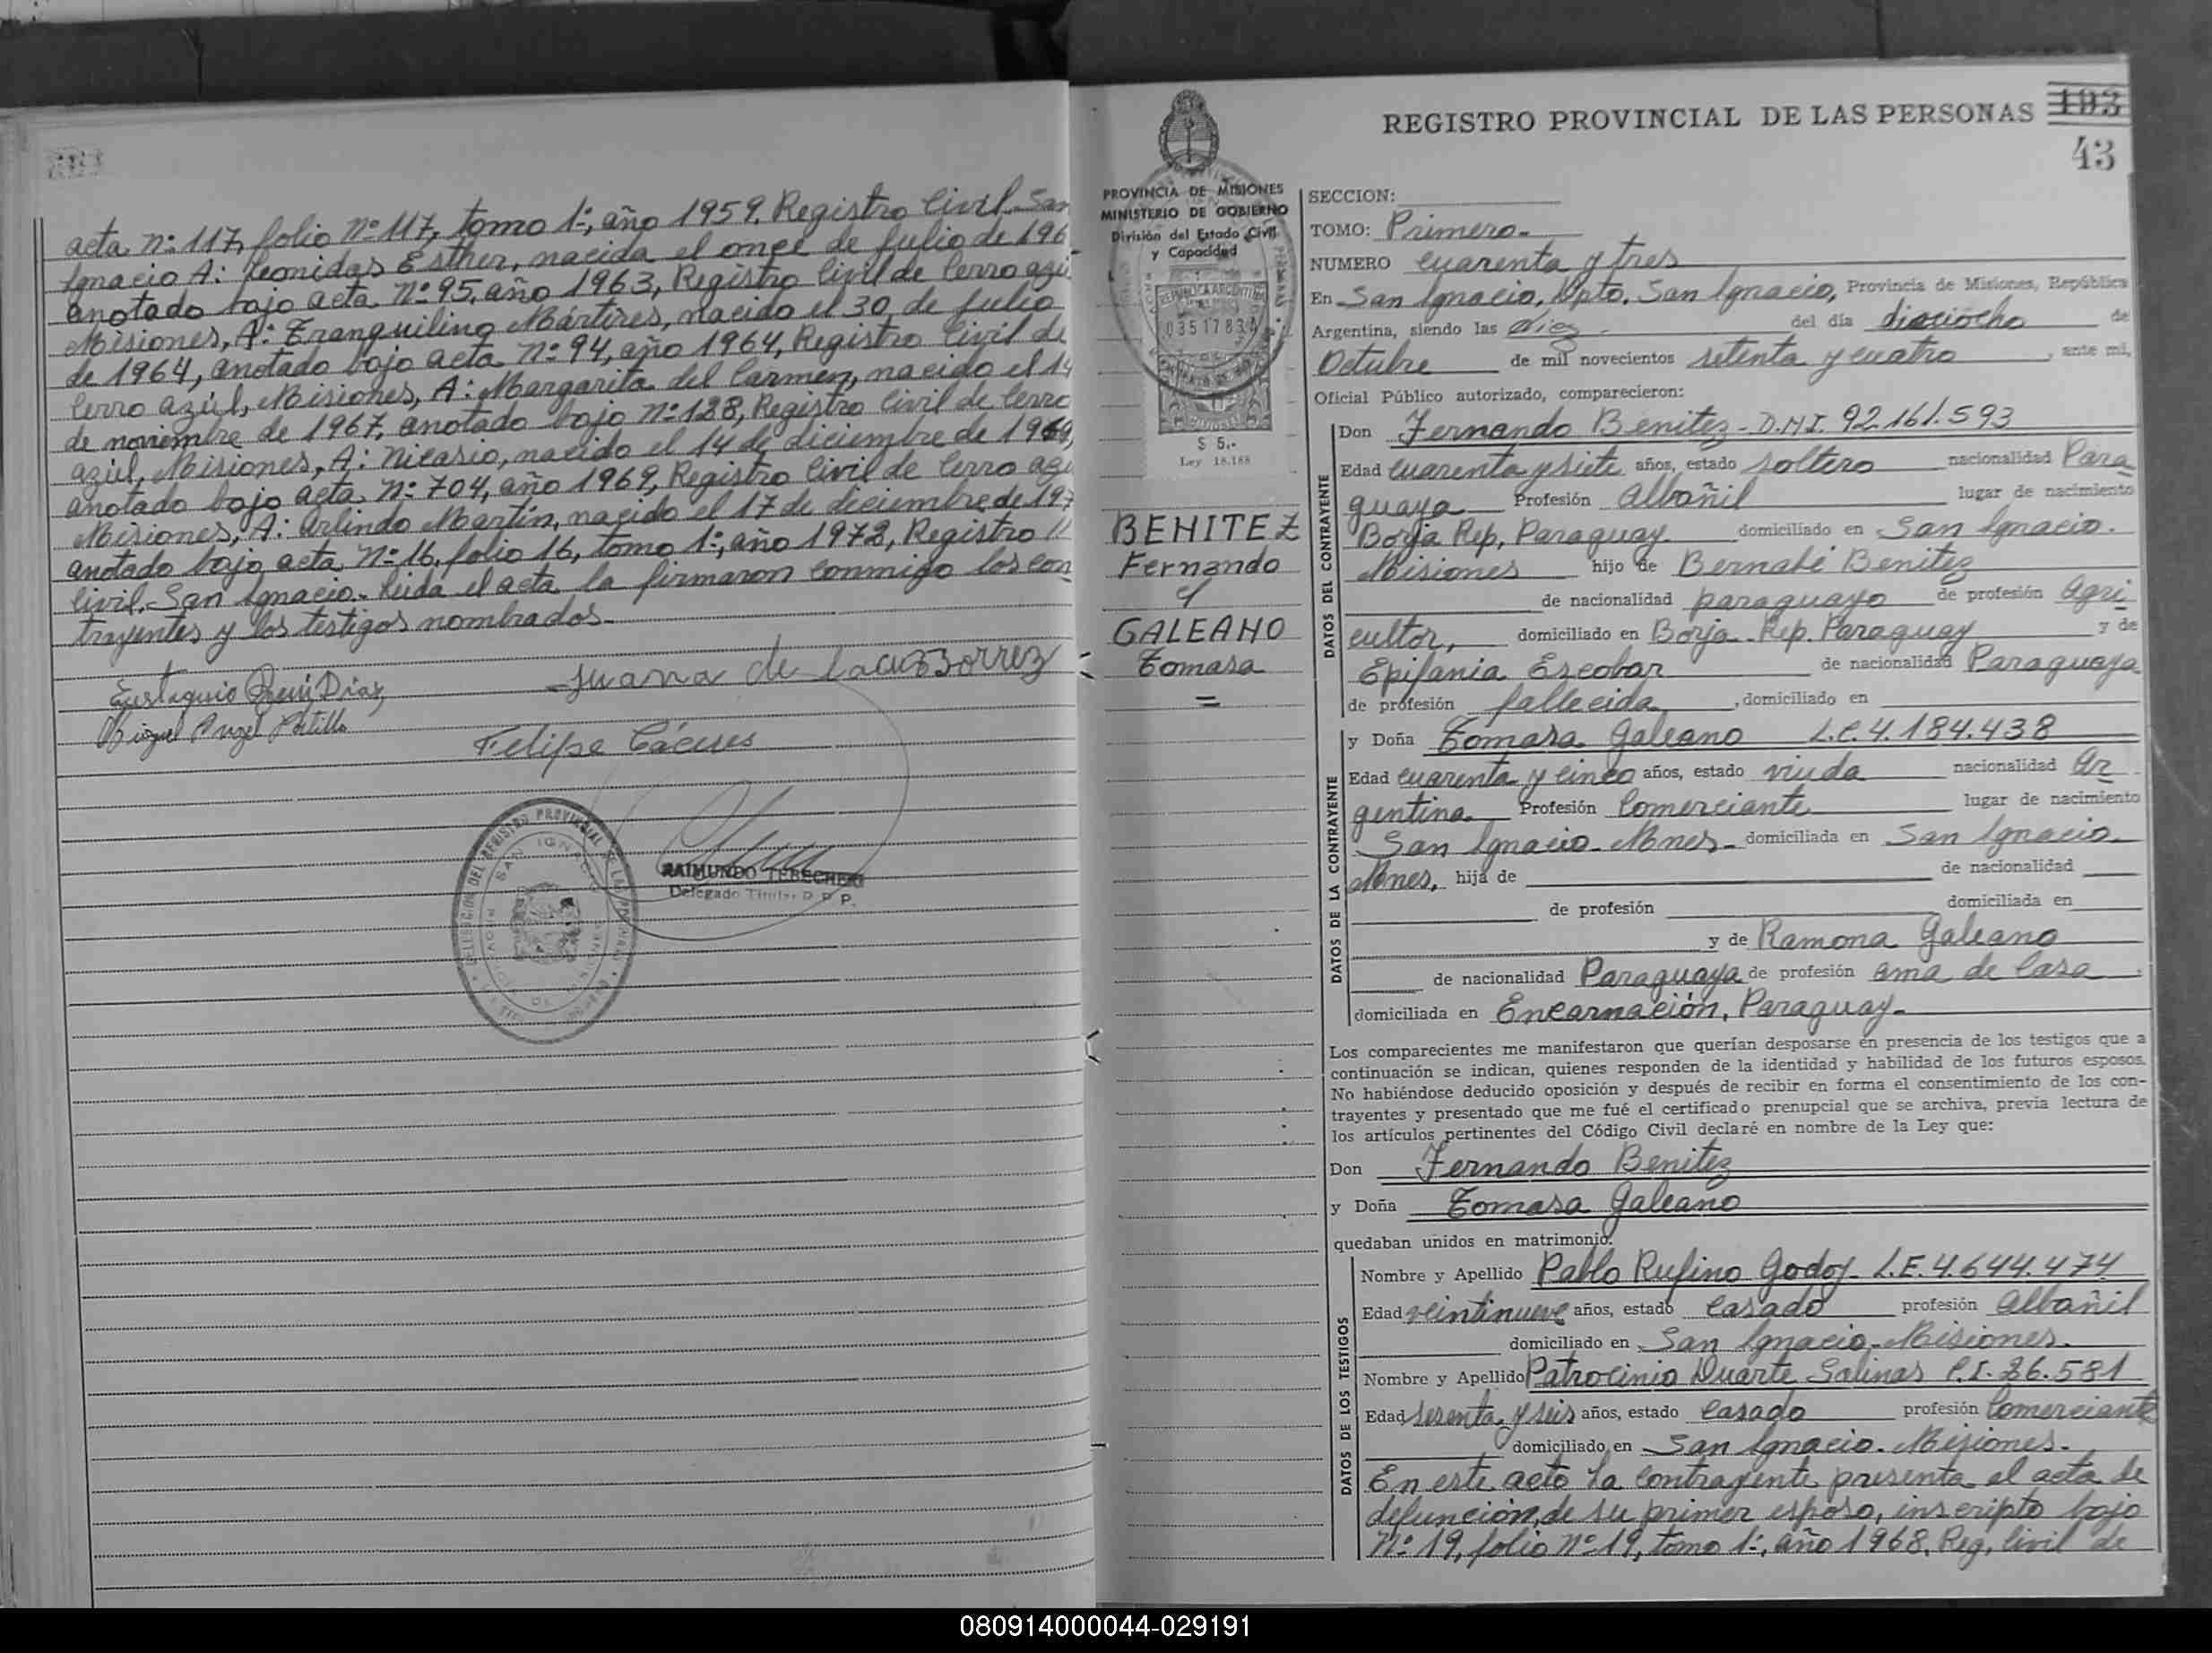 acta nº 117, folio nº 117, tomo 1º, año 1959, Registro Civil San
Ignacio A: Leonidas Esther, nacida el once de Julio de 196
anotado bajo acta nº 95, año 1963, Registro Civil de Cerro azú
Misiones, A: Tranquilino Mártires, nacido el 30 de Julio
de 1964, anotado bajo acta nº 94, año 1964, Registro Civil de
Cerro azúl, Misiones, A: Margarita del Carmen, nacido el 14
de noviembre de 1967, anotado bajo nº 128, Registro Civil de Cerro
azúl, Misiones, A: Nicasio, nacido el 14 de diciembre de 1969,
anotado bajo acta nº 704, año 1969, Registro Civil de Cerro azú
Misiones, A: Arlindo Martín, nacido el 17 de diciembre de 197
anotado bajo acta nº 16, folio 16, tomo 1º, año 1972, Registro //
Civil. San Ignacio. Leida el acta la firmaron conmigo los con
trayentes y los testigos nombrados.-
Juana de la
Eustaquio Díaz
Miguel Angel Portillo
Felipe Cáceres
RAIMUNDO TERECHERI
Delegado Titular R. P. P.
DELEGACION DEL REGISTRO PROVINCIAL DE LAS PERSONAS
SAN IGNACIO
REGISTRO PROVINCIAL DE LAS PERSONAS 193
43
PROVINCIA DE MISIONES
MINISTERIO DE GOBIERNO
División del Estado Civil
y Capacidad
REPUBLICA ARGENTINA
03517834
$ 5.-
Ley 18.188
BENITEZ
Fernando
y
GALEANO
Tomasa
=
SECCION:
TOMO: Primero.-
NUMERO cuarenta y tres
En San Ignacio, Dpto. San Ignacio, Provincia de Misiones, República
Argentina, siendo las diez del día dieciocho de
Octubre de mil novecientos setenta y cuatro, ante mí,
Oficial Público autorizado, comparecieron:
DATOS DEL CONTRAYENTE
Don Fernando Benitez - D.N.I. 92.161.593
Edad cuarenta y siete años, estado soltero nacionalidad Para
guaya Profesión Albañil lugar de nacimiento
Borja Rep. Paraguay domiciliado en San Ignacio.
Misiones hijo de Bernabé Benitez
de nacionalidad paraguayo de profesión Agri
cultor, domiciliado en Borja. Rep. Paraguay y de
Epifania Escobar de nacionalidad Paraguaya
de profesión fallecida, domiciliado en
DATOS DE LA CONTRAYENTE
y Doña Tomasa Galeano L.C. 4.184.438
Edad cuarenta y cinco años, estado viuda nacionalidad Ar
gentina Profesión Comerciante lugar de nacimiento
San Ignacio - Mnes - domiciliada en San Ignacio.
Mnes, hija de de nacionalidad
de profesión domiciliada en
y de Ramona Galeano
de nacionalidad Paraguaya de profesión ama de Casa
domiciliada en Encarnación, Paraguay.-
Los comparecientes me manifestaron que querían desposarse en presencia de los testigos que a
continuación se indican, quienes responden de la identidad y habilidad de los futuros esposos.
No habiéndose deducido oposición y después de recibir en forma el consentimiento de los con-
trayentes y presentado que me fué el certificado prenupcial que se archiva, previa lectura de
los artículos pertinentes del Código Civil declaré en nombre de la Ley que:
Don Fernando Benitez
y Doña Tomasa Galeano
quedaban unidos en matrimonio.
DATOS DE LOS TESTIGOS
Nombre y Apellido Pablo Rufino Godoy - L.E. 4.644.474
Edad veintinueve años, estado Casado profesión Albañil
domiciliado en San Ignacio. Misiones.
Nombre y Apellido Patrocinio Duarte Salinas C.I. 26.581
Edad sesenta y seis años, estado Casado profesión Comerciante
domiciliado en San Ignacio - Misiones.
En este acto la contrayente presenta el acta de
defunción, de su primer esposo, inscripto bajo
Nº 19, folio nº 19, tomo 1º, año 1968, Reg. Civil de
080914000044-029191